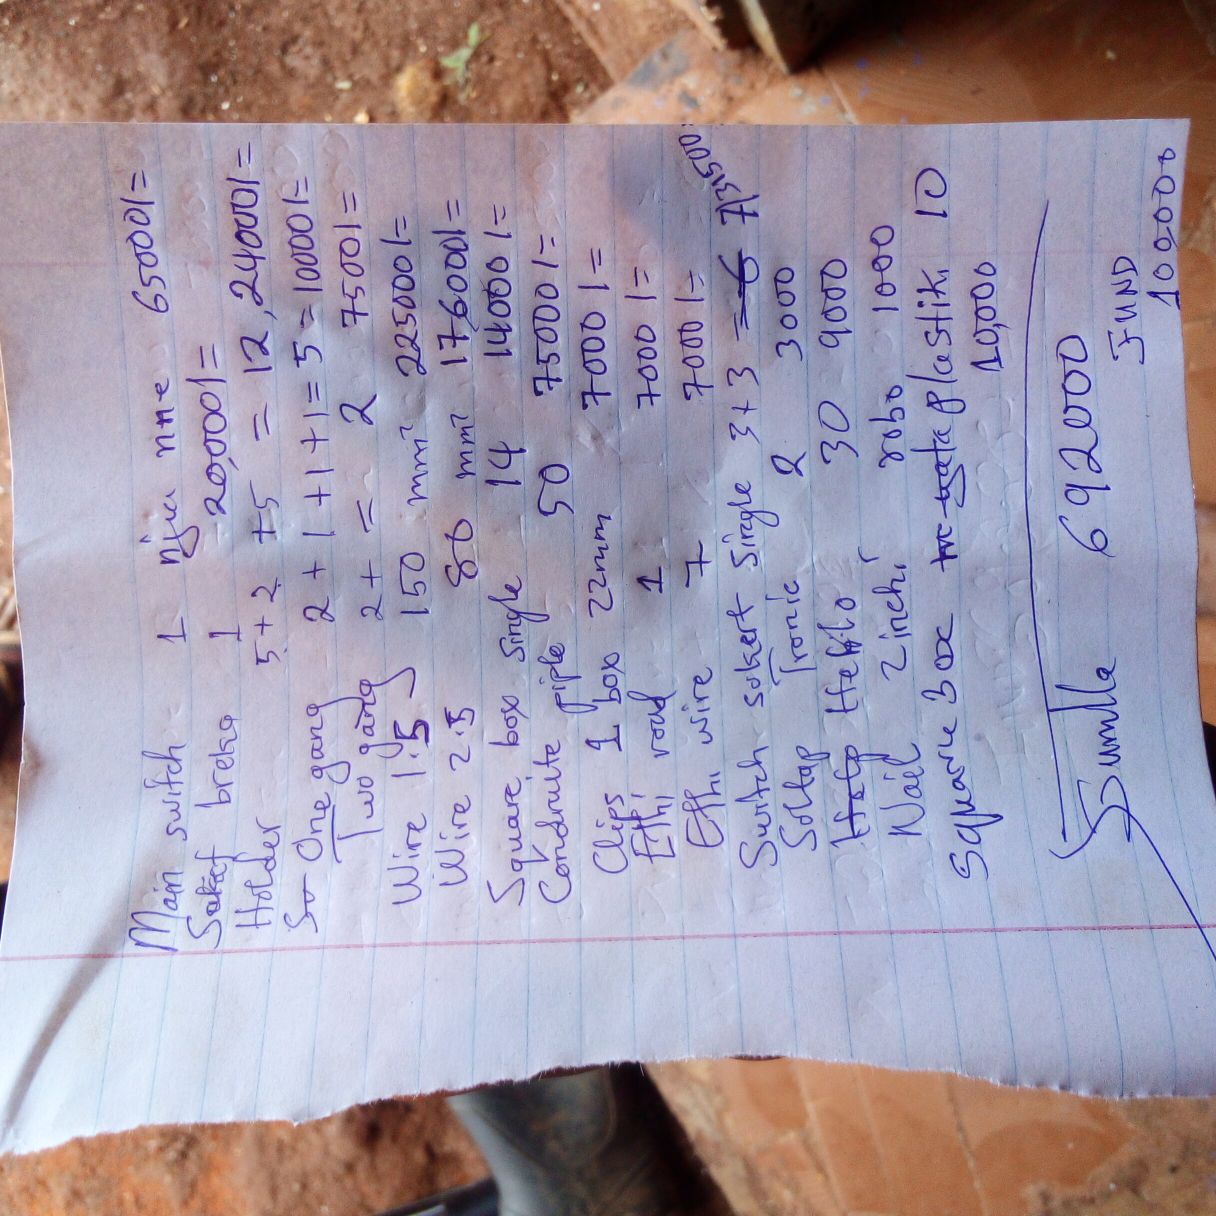 Main switch 1 njia nne 65000/=
Saket breka 1 20,000/=
Holder 5+2+5 = 12, 24000/=
One gang 2+1+1+1=5= 10000/=
Two gang 2+ = 2 7500/=
Wire 1.5 150 mm² 225000/=
Wire 2.5 80 mm² 176000/=
Square box single 14 14000/=
Conduruite piple 50 75000/=
Clips 1 box 22mm 7000/=
Ethi rod 1 7000/=
Ethi wire 7 7000/=
Switch soket single 3+3 =6 7/31500=
Soltap Tronic 2 3000
30 9000
Nail 2 inchi robo 1000
Square Box plastiki 10
10,000
Jumla 692000
FUND
100,000